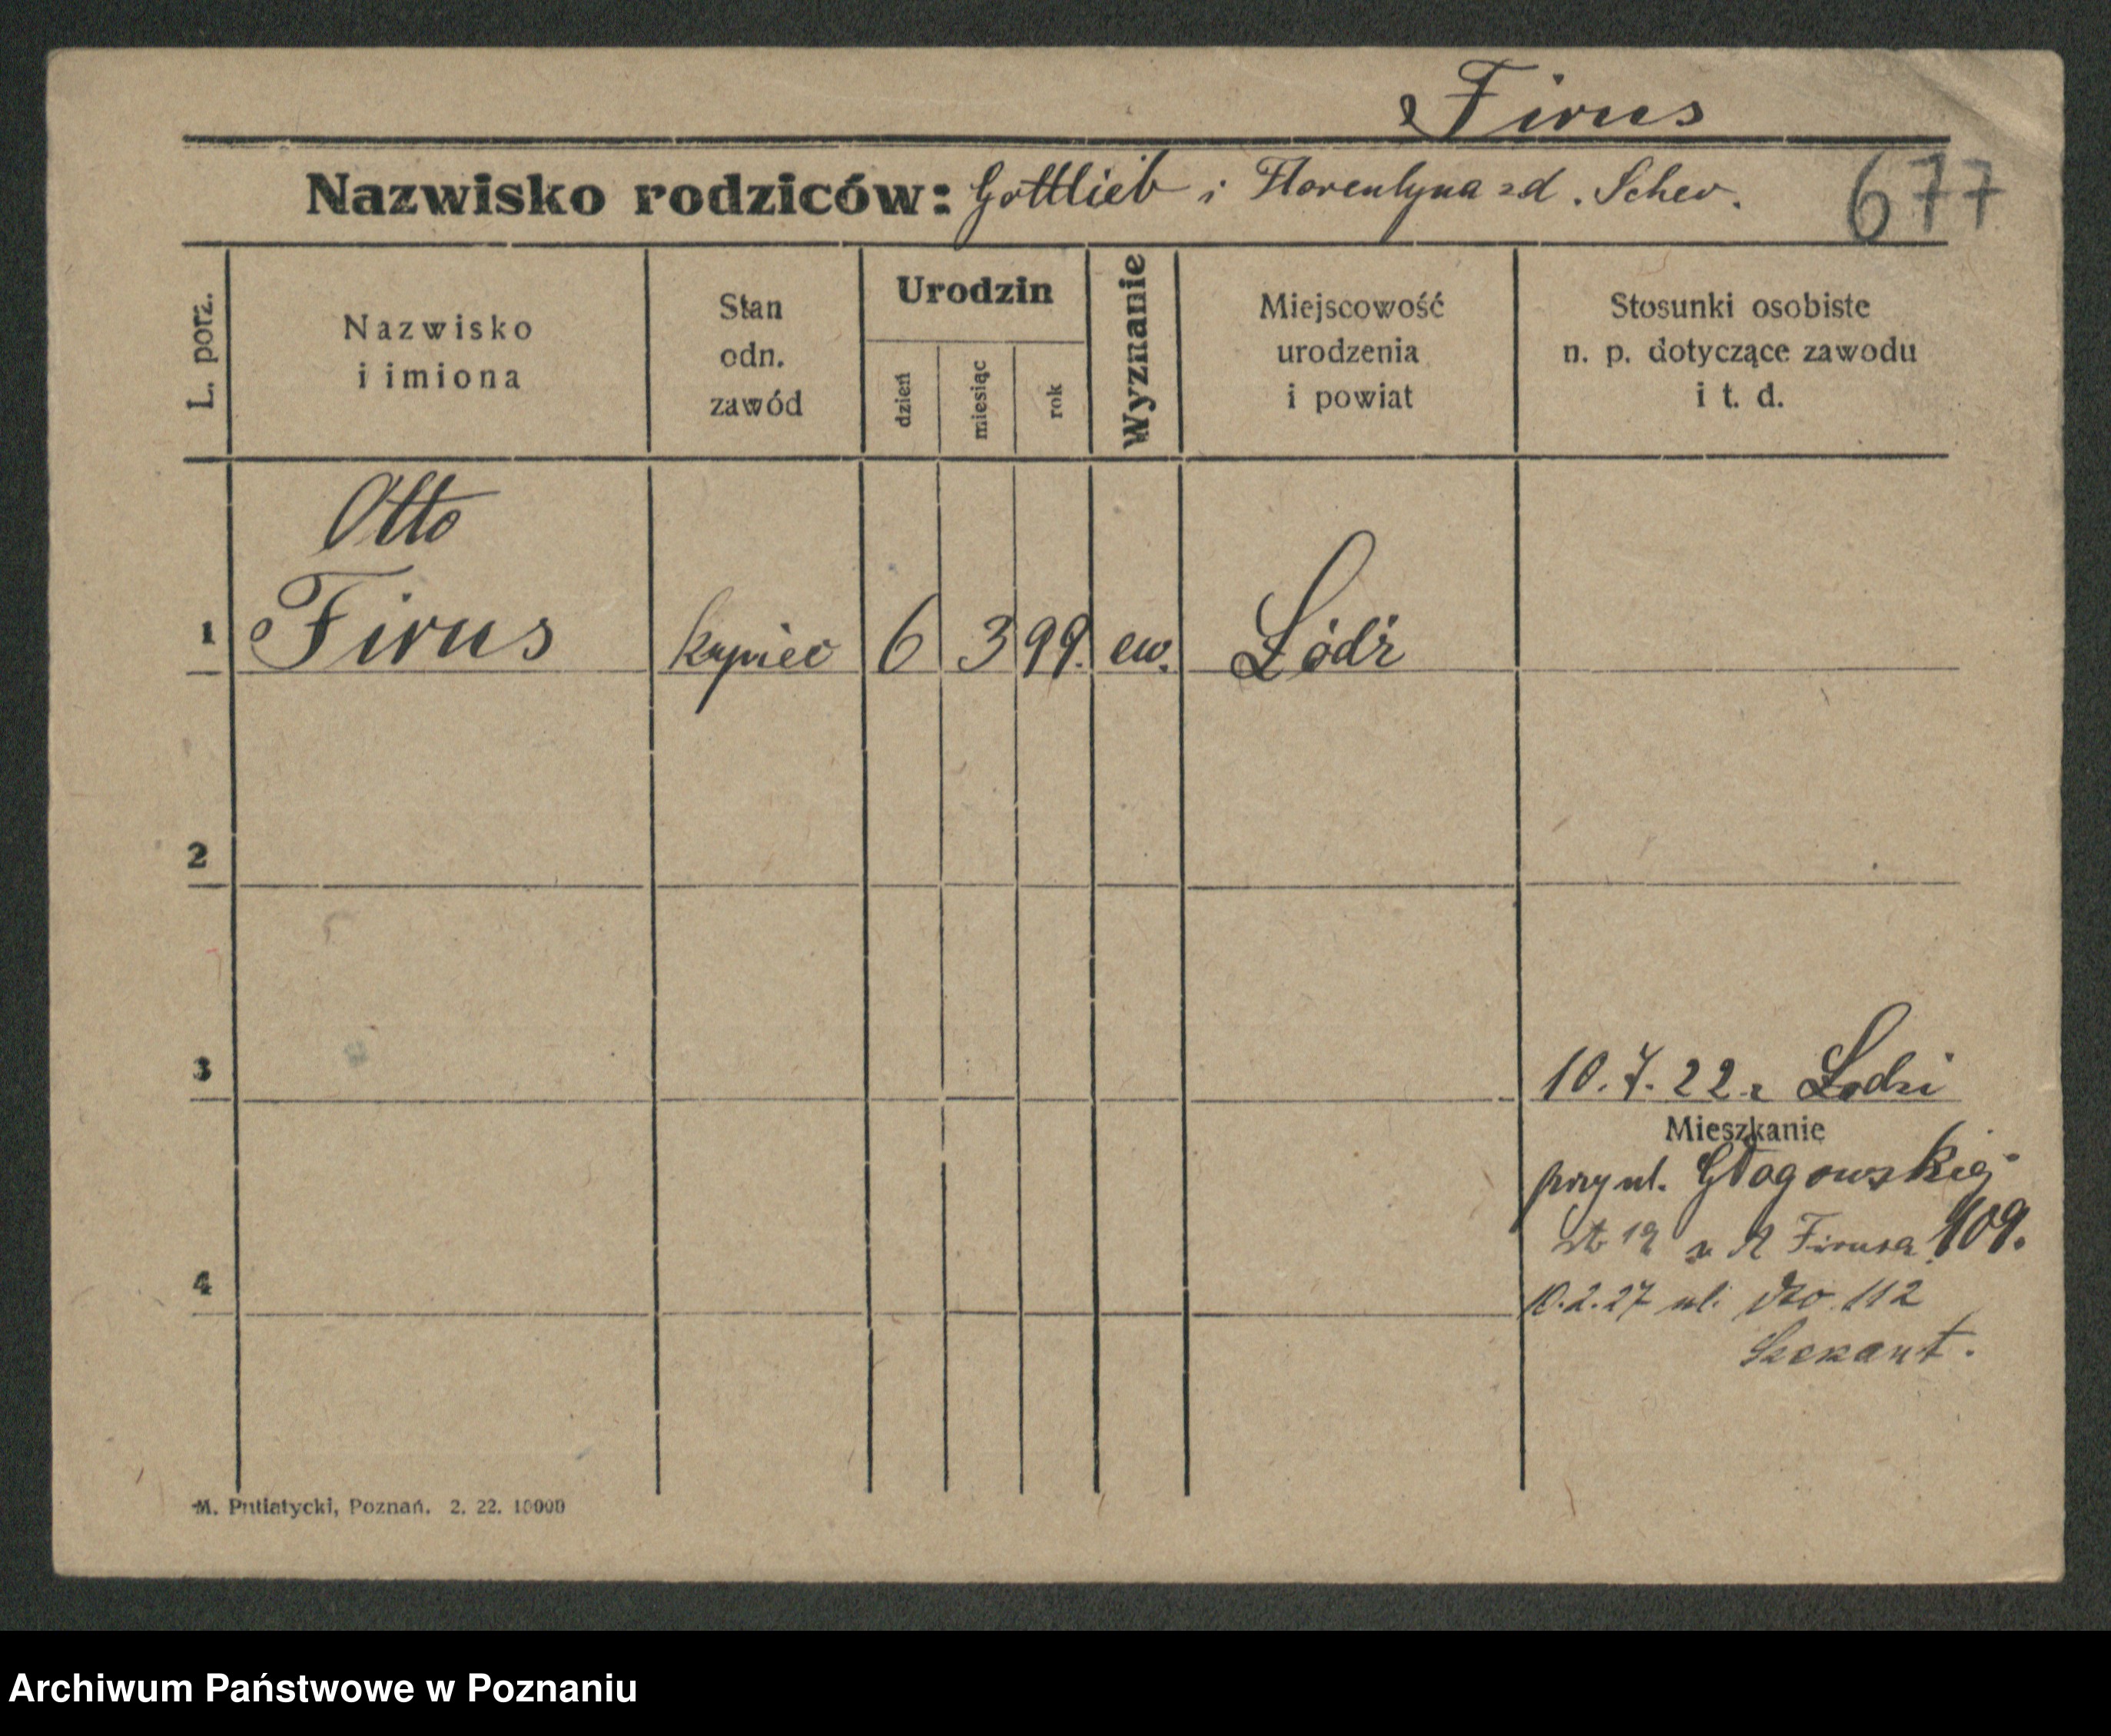 Firus
Nazwisko rodziców: Gottlieb i Florentyna zd. Scher.
677
L. porz.
Nazwisko
i imiona
Stan
odn.
zawód
Urodzin
dzień
miesiąc
rok
Wyznanie
Miejscowość
urodzenia
i powiat
Stosunki osobiste
n. p. dotyczące zawodu
i t. d.
Otto
1 Firus kupiec 6 3 99. ew. Łódź
2
3
10.7.22 z Łodzi
Mieszkanie
przy ul. Głogowskiej
109.
19 u Firusa
4
10.2.27 ul. 112
M. Putiatycki, Poznań. 2. 22. 10000
Archiwum Państwowe w Poznaniu